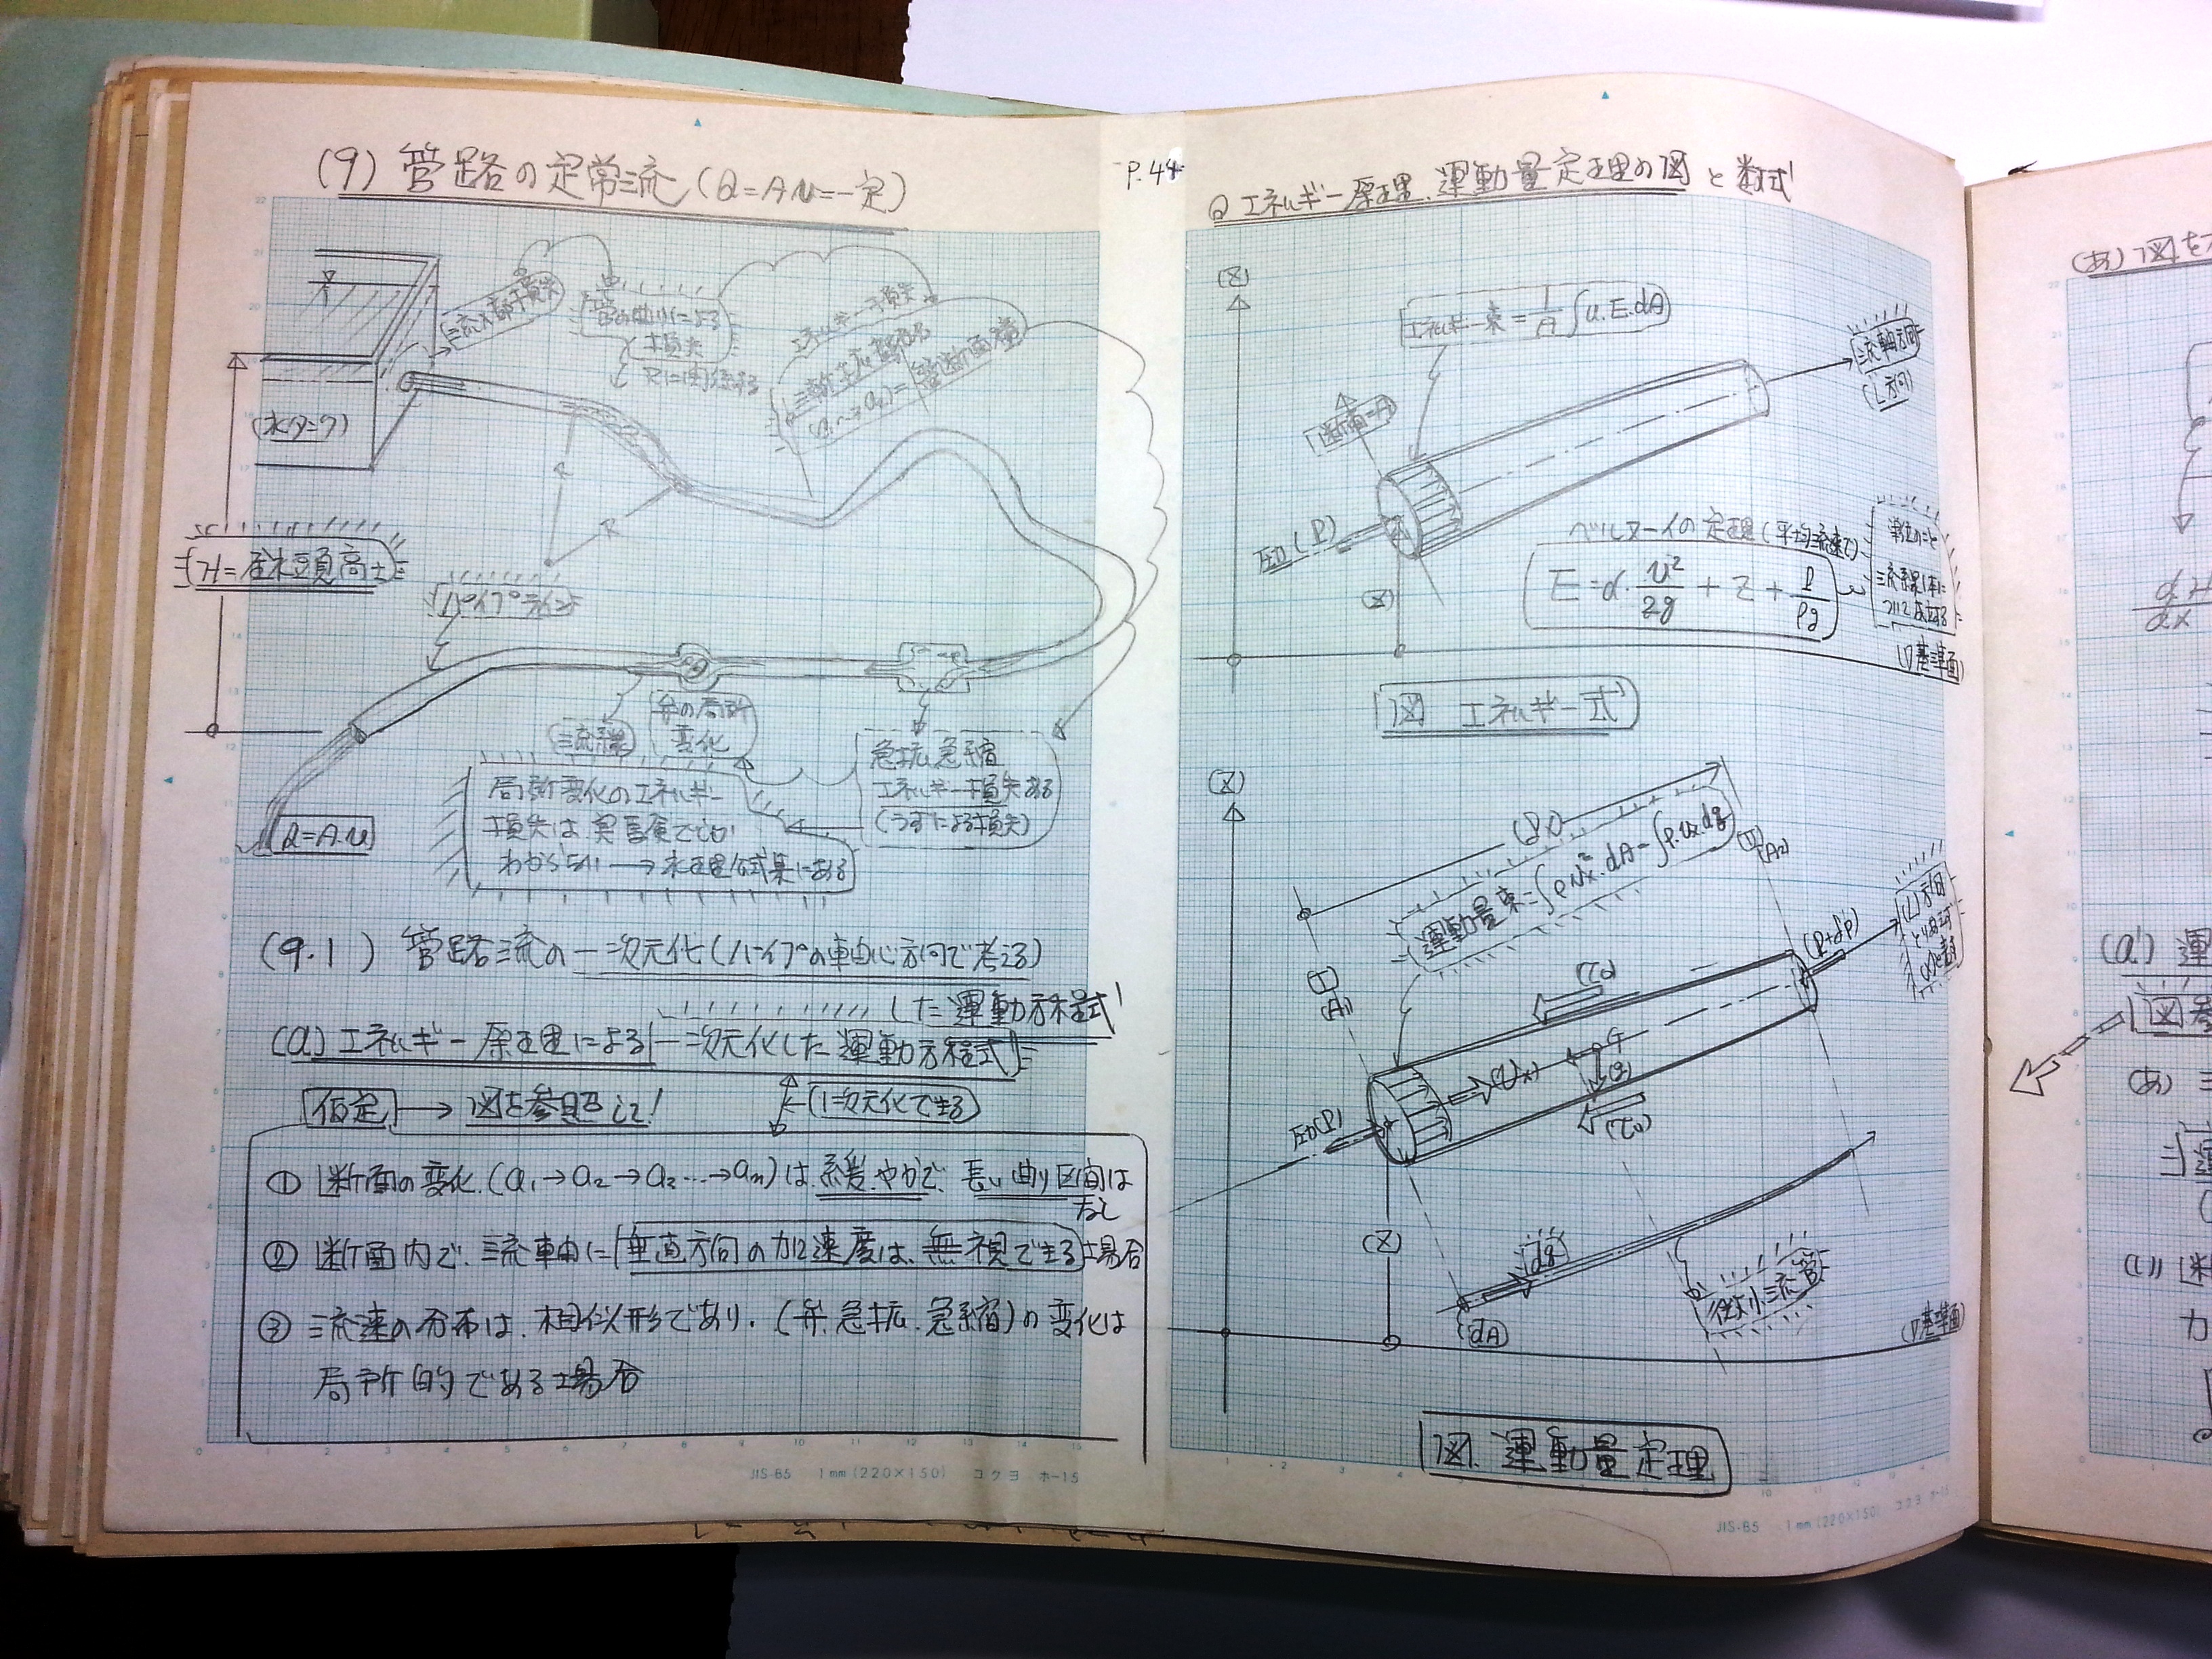 (9) 管路の定常流 (Q=A.v=一定)
流入部損失
管の曲りによる
損失
Rに関係する
エネルギー損失
管断面積
(水タンク)
R
R
H=
パイプライン
流線
弁の局所
変化
急拡.急縮
エネルギー損失ある
(うずによる損失)
局所変化のエネルギー
損失は、実験でしか
わからない → 水理公式集にある
Q=A.v
(9.1) 管路流の一次元化(パイプの軸心方向で考える)
した運動方程式
(a) エネルギー原理による 一次元化した運動方程式
仮定 → 図を参照して!
(1次元化できる)
① 断面の変化.(a₁→a₂→a₃…→aₙ)は.緩やかで、長い曲り区間は
なし
② 断面内で.流軸に 垂直方向の加速度は、無視できる 場合
③ 流速の分布は、相似形であり.(弁.急拡.急縮)の変化は
局所的である場合
JIS-B5 1mm(220×150) コクヨ ホ-15
P.44
◎ エネルギー原理.運動量定理の図と数式
(Z)
エネルギー束 = 1/A ∫u.E.dA
流軸方向
(L方向)
断面=A
圧力(P)
(Z)
ベルヌーイの定理(平均流速で)
E = α.v²/2g + Z + P/ρg
(基準面)
図 エネルギー式
(Z)
(dx)
運動量束=∫ρvx².dA=∫ρ.vx.dq
(I)
(A1)
(II)
(A2)
(P+dP)
(τ0)
(Vx)
G
(g)
(τ0)
圧力(P)
(Z)
dq
dA
微小流管
(基準面)
図.運動量定理
JIS-B5 1mm(220×150) コクヨ ホ-15
(あ) 図を
dH
dx
(a') 運
図参
(あ)
(い) 断